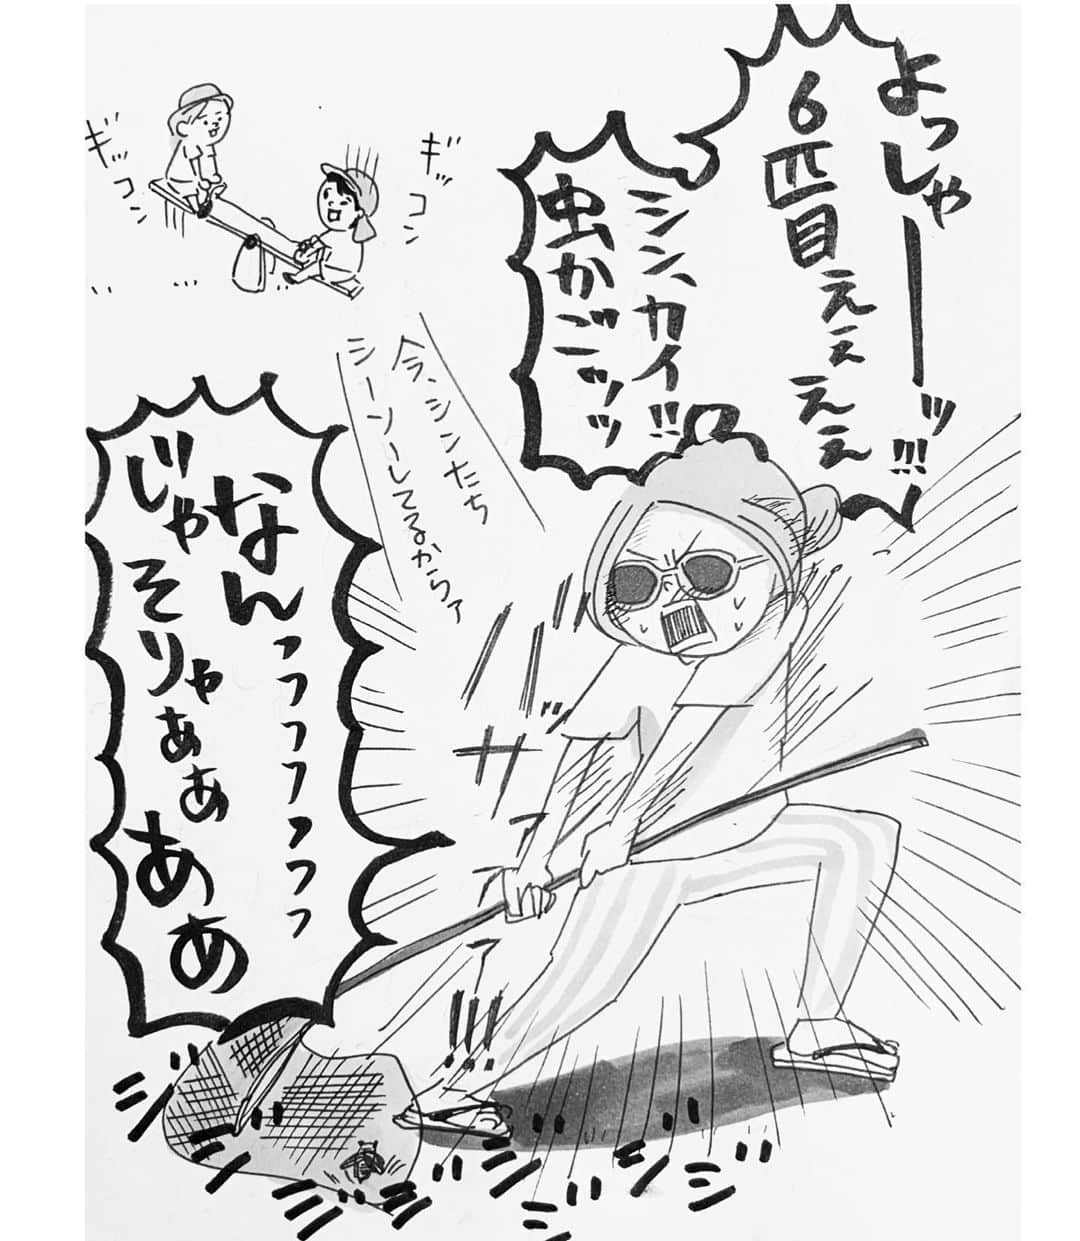 よっしゃーーッ!!!
6匹目ぇぇぇぇ
シン、カイ!!
虫かごッッ
ギッコン
ギッコン
今、シンたち
シーソーしてるからァ
なんっっっっっっっ
じゃそりゃぁぁああ
バサァァァ!!!
ジジジジジジジジ